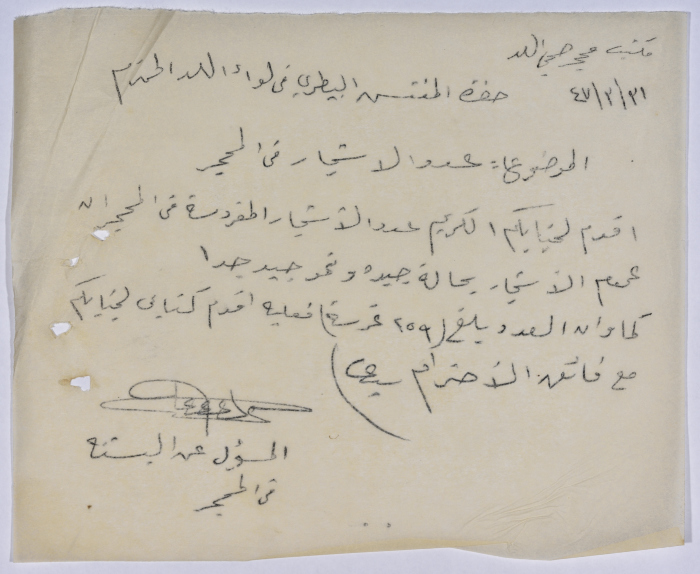 مكتب محجر صحي اللد
٤٧/٣/٣١
حضرة المفتش البيطري في لواء اللد المحترم
الموضوع:- عدد الاشجار في المحجر
اقدم لجنابكم الكريم عدد الأشجار المغروسة في المحجر ان
عموم الاشجار بحالة جيده ونمو جيد جدا
كما وان العدد يبلغ (٢٥٩ غرسة) فعليه اقدم كتابي لجنابكم
مع فائق الاحترام سيدي
المسؤل عن البستنه
في المحجر